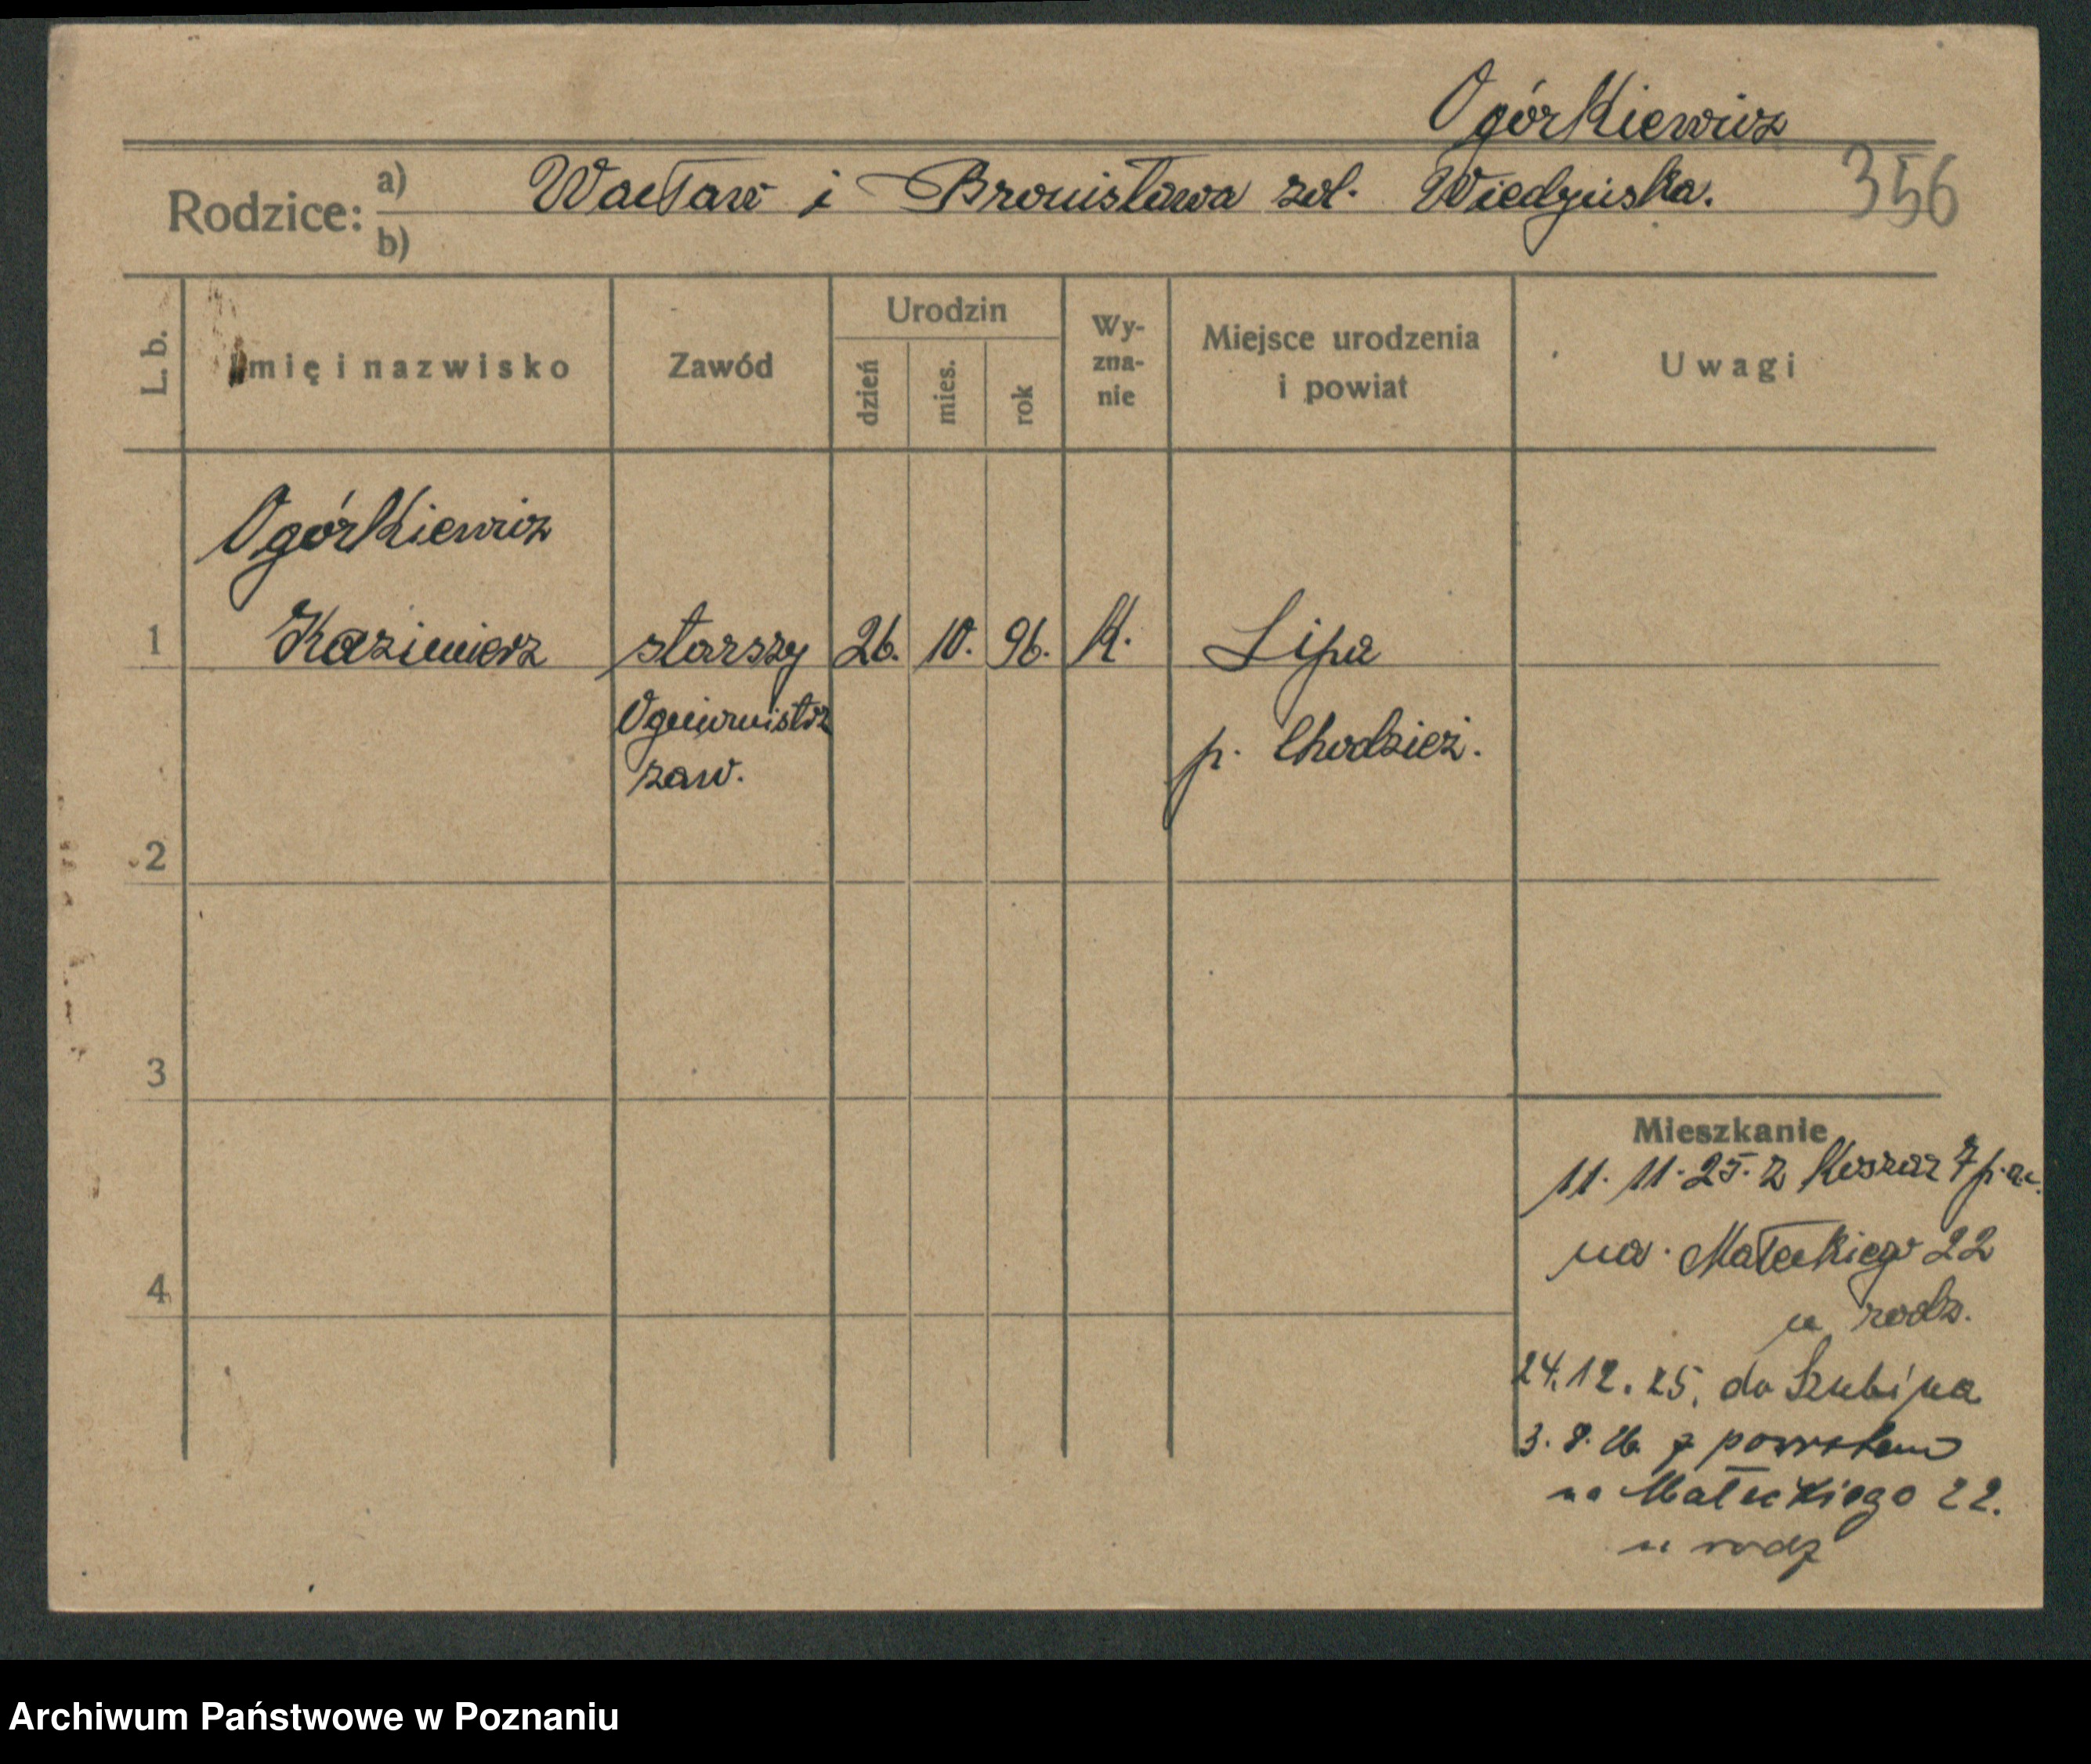 Ogórkiewicz
Rodzice: a) Wacław i Bronisława zd. 356
b)
L. b.
Imię i nazwisko
Zawód
Urodzin
dzień
mies.
rok
Wy-
zna-
nie
Miejsce urodzenia
i powiat
Uwagi
Ogórkiewicz
1 Kazimierz starszy 26. 10. 96. K. Lipa
Ogniomistrz p. Chodzież.
zaw.
2
3
4
Mieszkanie
11. 11. 25. z Koszar 7 p. a. c.
na Małeckiego 22
u rodz.
24. 12. 25. do Szubina
3. 8. 26. z powrotem
na Małeckiego 22.
u rodz
Archiwum Państwowe w Poznaniu